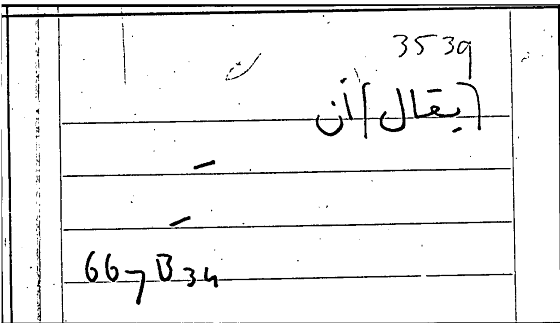 3539
[يقال] أن
667B34